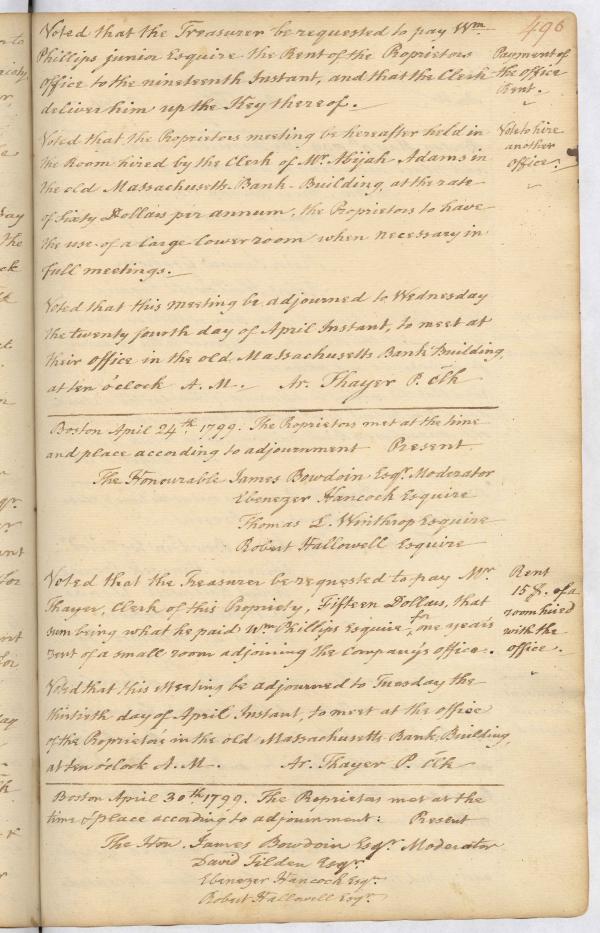 496
Voted that the Treasurer be requested to pay Wm
Phillips junior Esquire the Rent of the Proprietors
office to the nineteenth Instant, and that the Clerk
deliver him up the Key thereof.
Payment of
the office
Rent.
Voted that the Proprietors meeting be hereafter held in
the Room hired by the Clerk of Mr. Abijah Adams in
the old Massachusetts Bank Building, at the rate
of Sixty Dollars per annum, the Proprietors to have
the use of a large lower room when necessary in
full meetings.
Vote to hire
another
office.
Voted that this meeting be adjourned to Wednesday
the twenty fourth day of April Instant, to meet at
their office in the old Massachusetts Bank Building,
at ten o'clock A. M. Ar. Thayer P. Clk
Boston April 24th 1799. The Proprietors met at the time
and place according to adjournment Present.
The Honourable James Bowdoin Esqr. Moderator
Ebenezer Hancock Esquire
Thomas L. Winthrop Esquire
Robert Hallowell Esquire
Voted that the Treasurer be requested to pay Mr.
Thayer, Clerk of this Propriety, Fifteen Dollars, that
sum being what he paid Wm Phillips Esquire for one years
rent of a small room adjoining the Company's office.
Rent
15$. of a
room hired
with the
office.
Voted that this Meeting be adjourned to Tuesday the
thirtieth day of April Instant, to meet at the office
of the Proprietors in the old Massachusetts Bank Building,
at ten o'clock A. M. Ar. Thayer P. Clk
Boston April 30th 1799. The Proprietors met at the
time & place according to adjournment: Present
The Hon. James Bowdoin Esqr. Moderator
David Tilden Esqr.
Ebenezer Hancock Esqr.
Robert Hallowell Esqr.